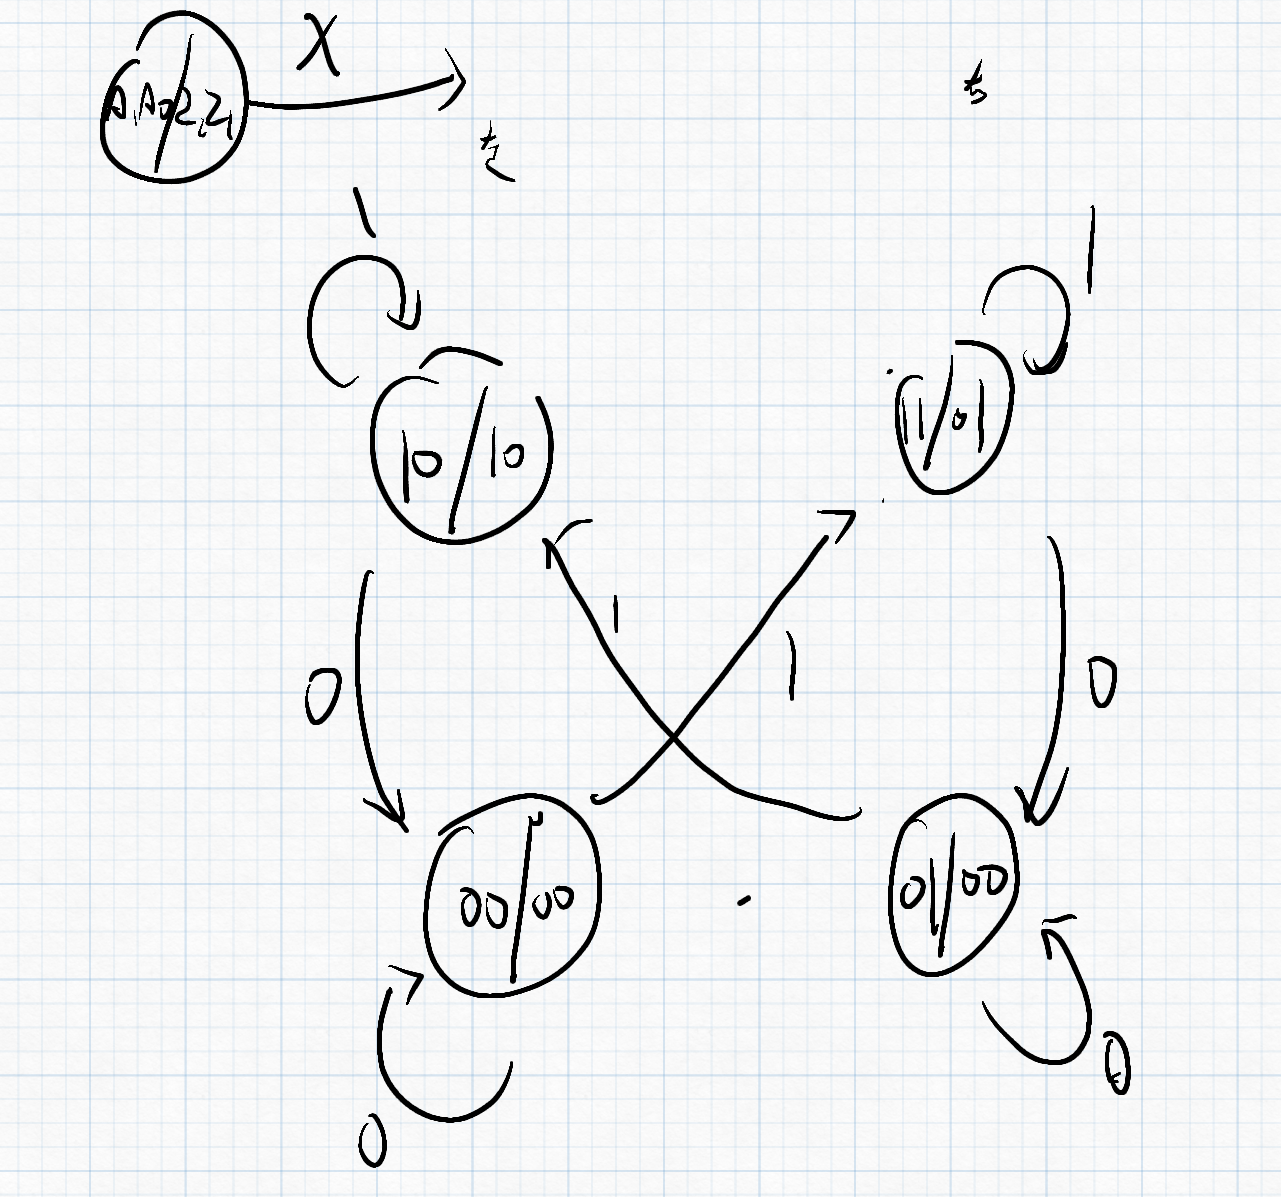 A₁A₀/Z₂Z₁ X
1 1
10/10 11/01
1 1
0 0
00/00 01/00
0
0